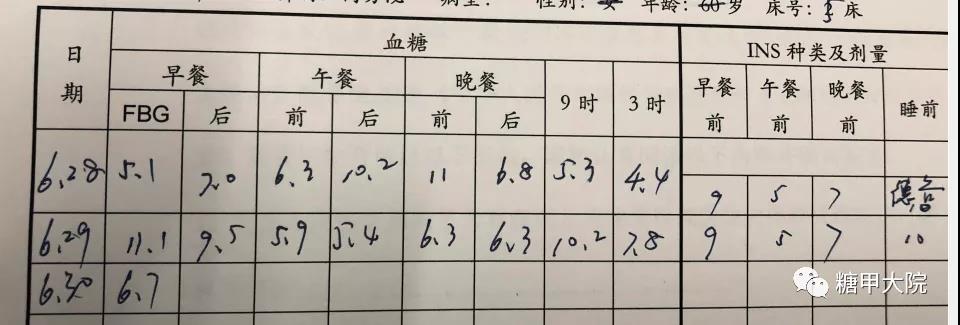 病室: 性别: 女 年龄: 60 岁 床号: 床
日期 血糖 INS 种类及剂量
早餐 午餐 晚餐 9时 3时 早餐前 午餐前 晚餐前 睡前
FBG 后 前 后 前 后
6.28 5.1 7.0 6.3 10.2 11 6.8 5.3 4.4 9 5 7
6.29 11.1 9.5 5.9 5.4 6.3 6.3 10.2 7.8 9 5 7 10
6.30 6.7
糖甲大院